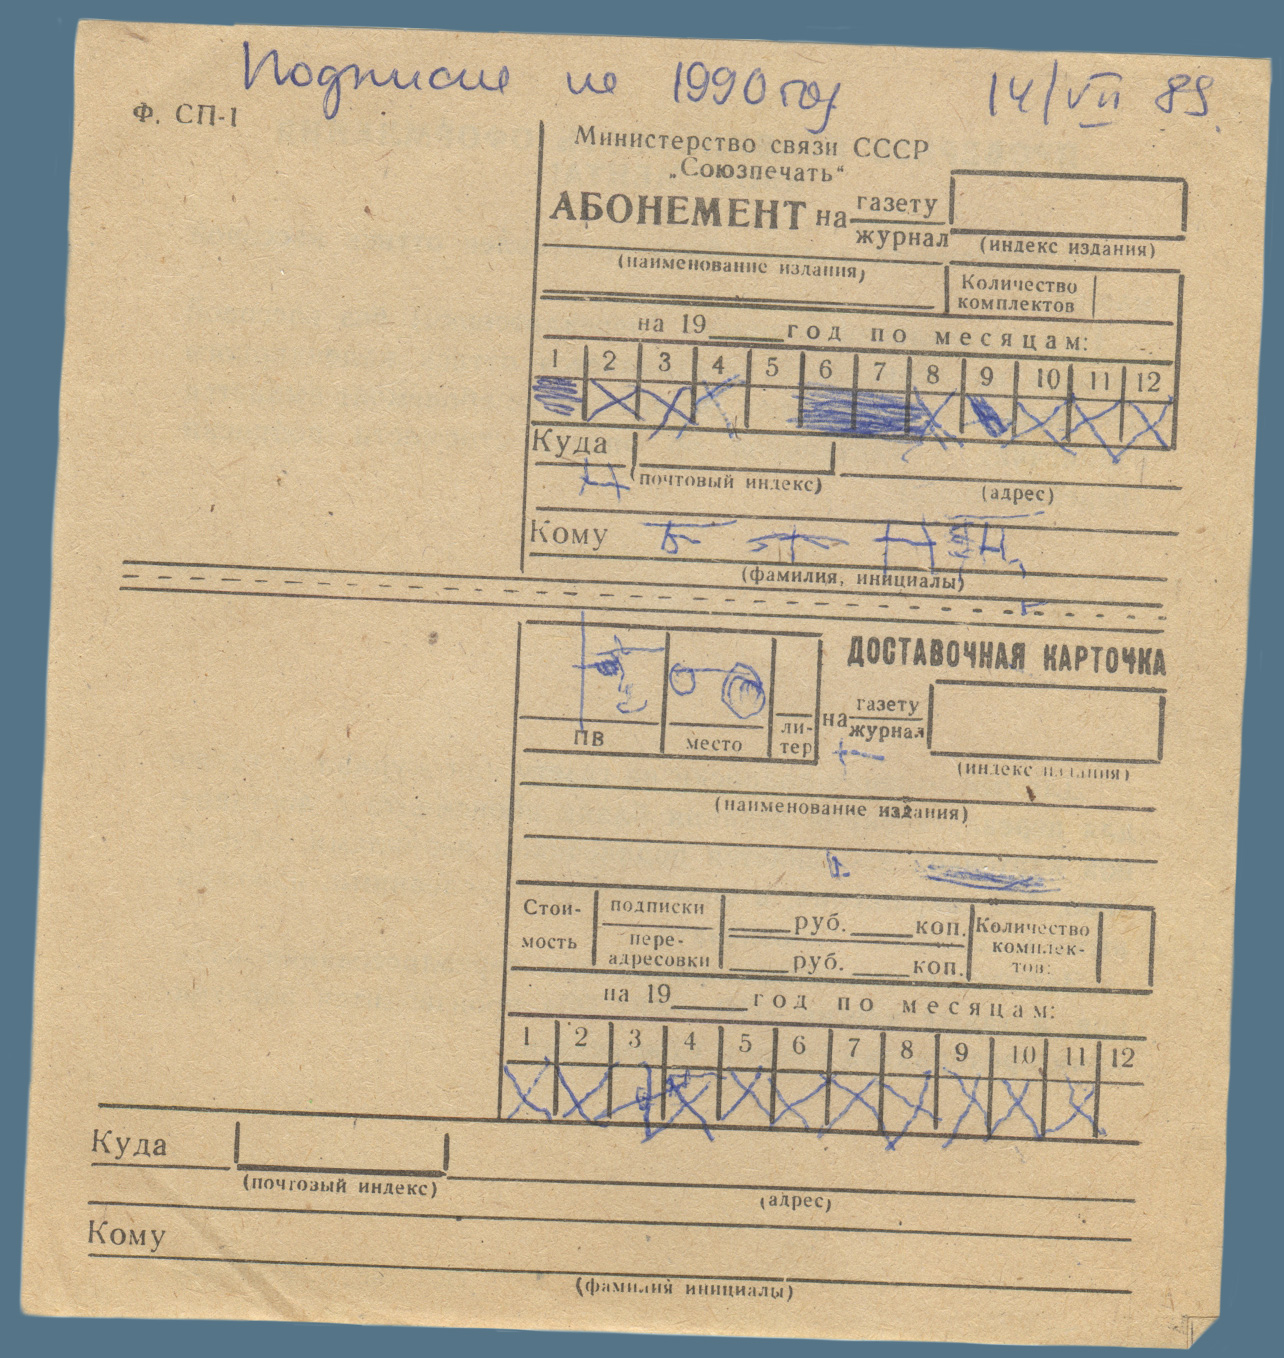 Подписка на 1990 год 14/VII 89.
Ф. СП-1
Министерство связи СССР
„Союзпечать“
АБОНЕМЕНТ на газету
журнал
(индекс издания)
(наименование издания)
Количество
комплектов
на 19____ год по месяцам:
1 2 3 4 5 6 7 8 9 10 11 12
Куда
(почтовый индекс)
(адрес)
Кому
(фамилия, инициалы)
ДОСТАВОЧНАЯ КАРТОЧКА
ПВ место ли-
тер
на газету
журнал
(индекс издания)
(наименование издания)
Стои-
мость
подписки ____руб. ____коп.
пере-
адресовки ____руб. ____коп.
Количество
комплек-
тов:
на 19____ год по месяцам:
1 2 3 4 5 6 7 8 9 10 11 12
Куда
(почтовый индекс)
(адрес)
Кому
(фамилия инициалы)